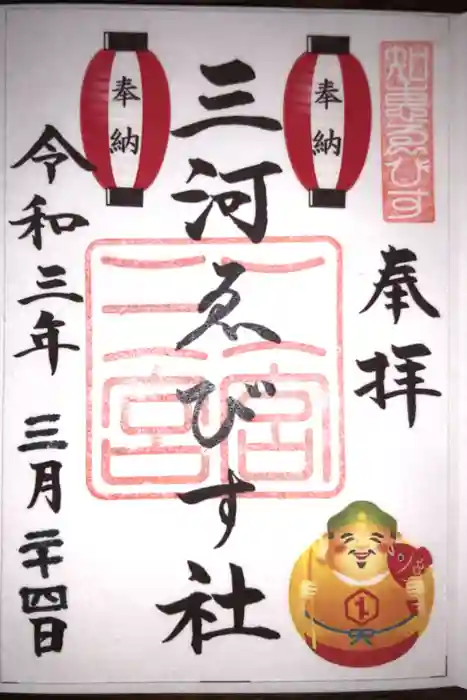 知恵ゑびす
奉拝
奉納
三河ゑびす社
奉納
二宮
三宮
令和三年 三月二十四日